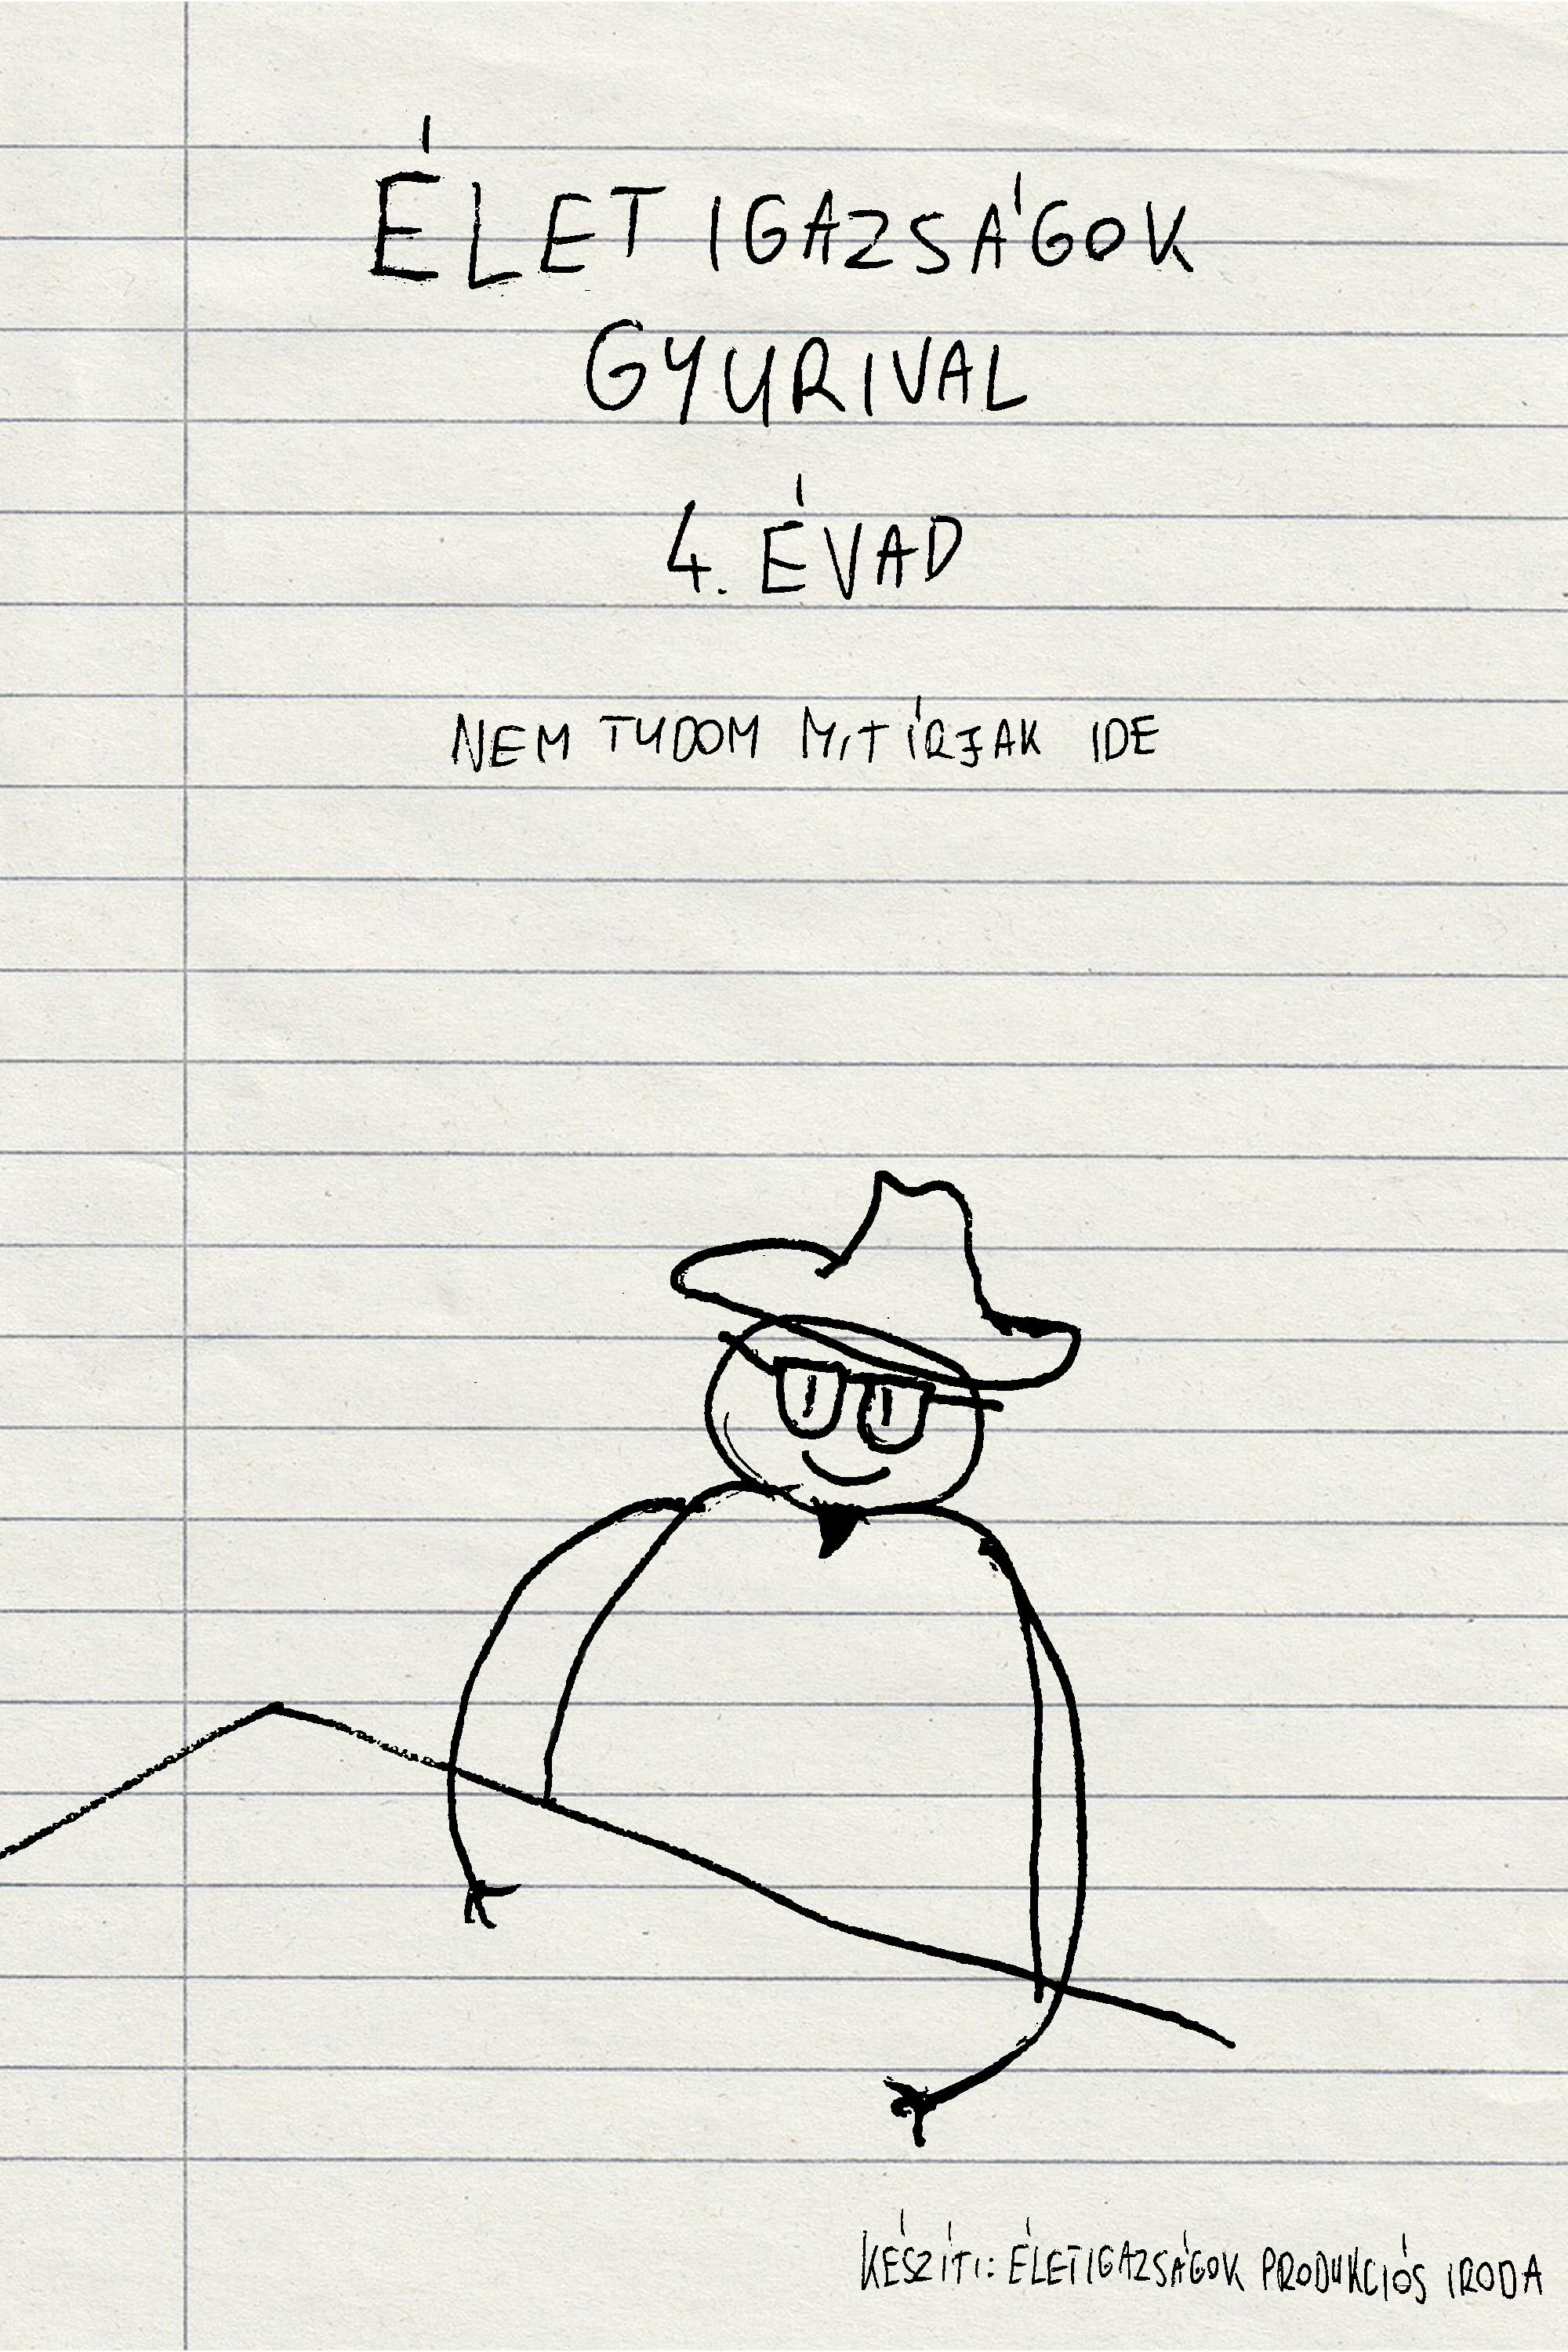 ÉLET IGAZSÁGOK
GYURIVAL
4. ÉVAD
NEM TUDOM MIT ÍRJAK IDE
KÉSZÍTI: ÉLETIGAZSÁGOK PRODUKCIÓS IRODA